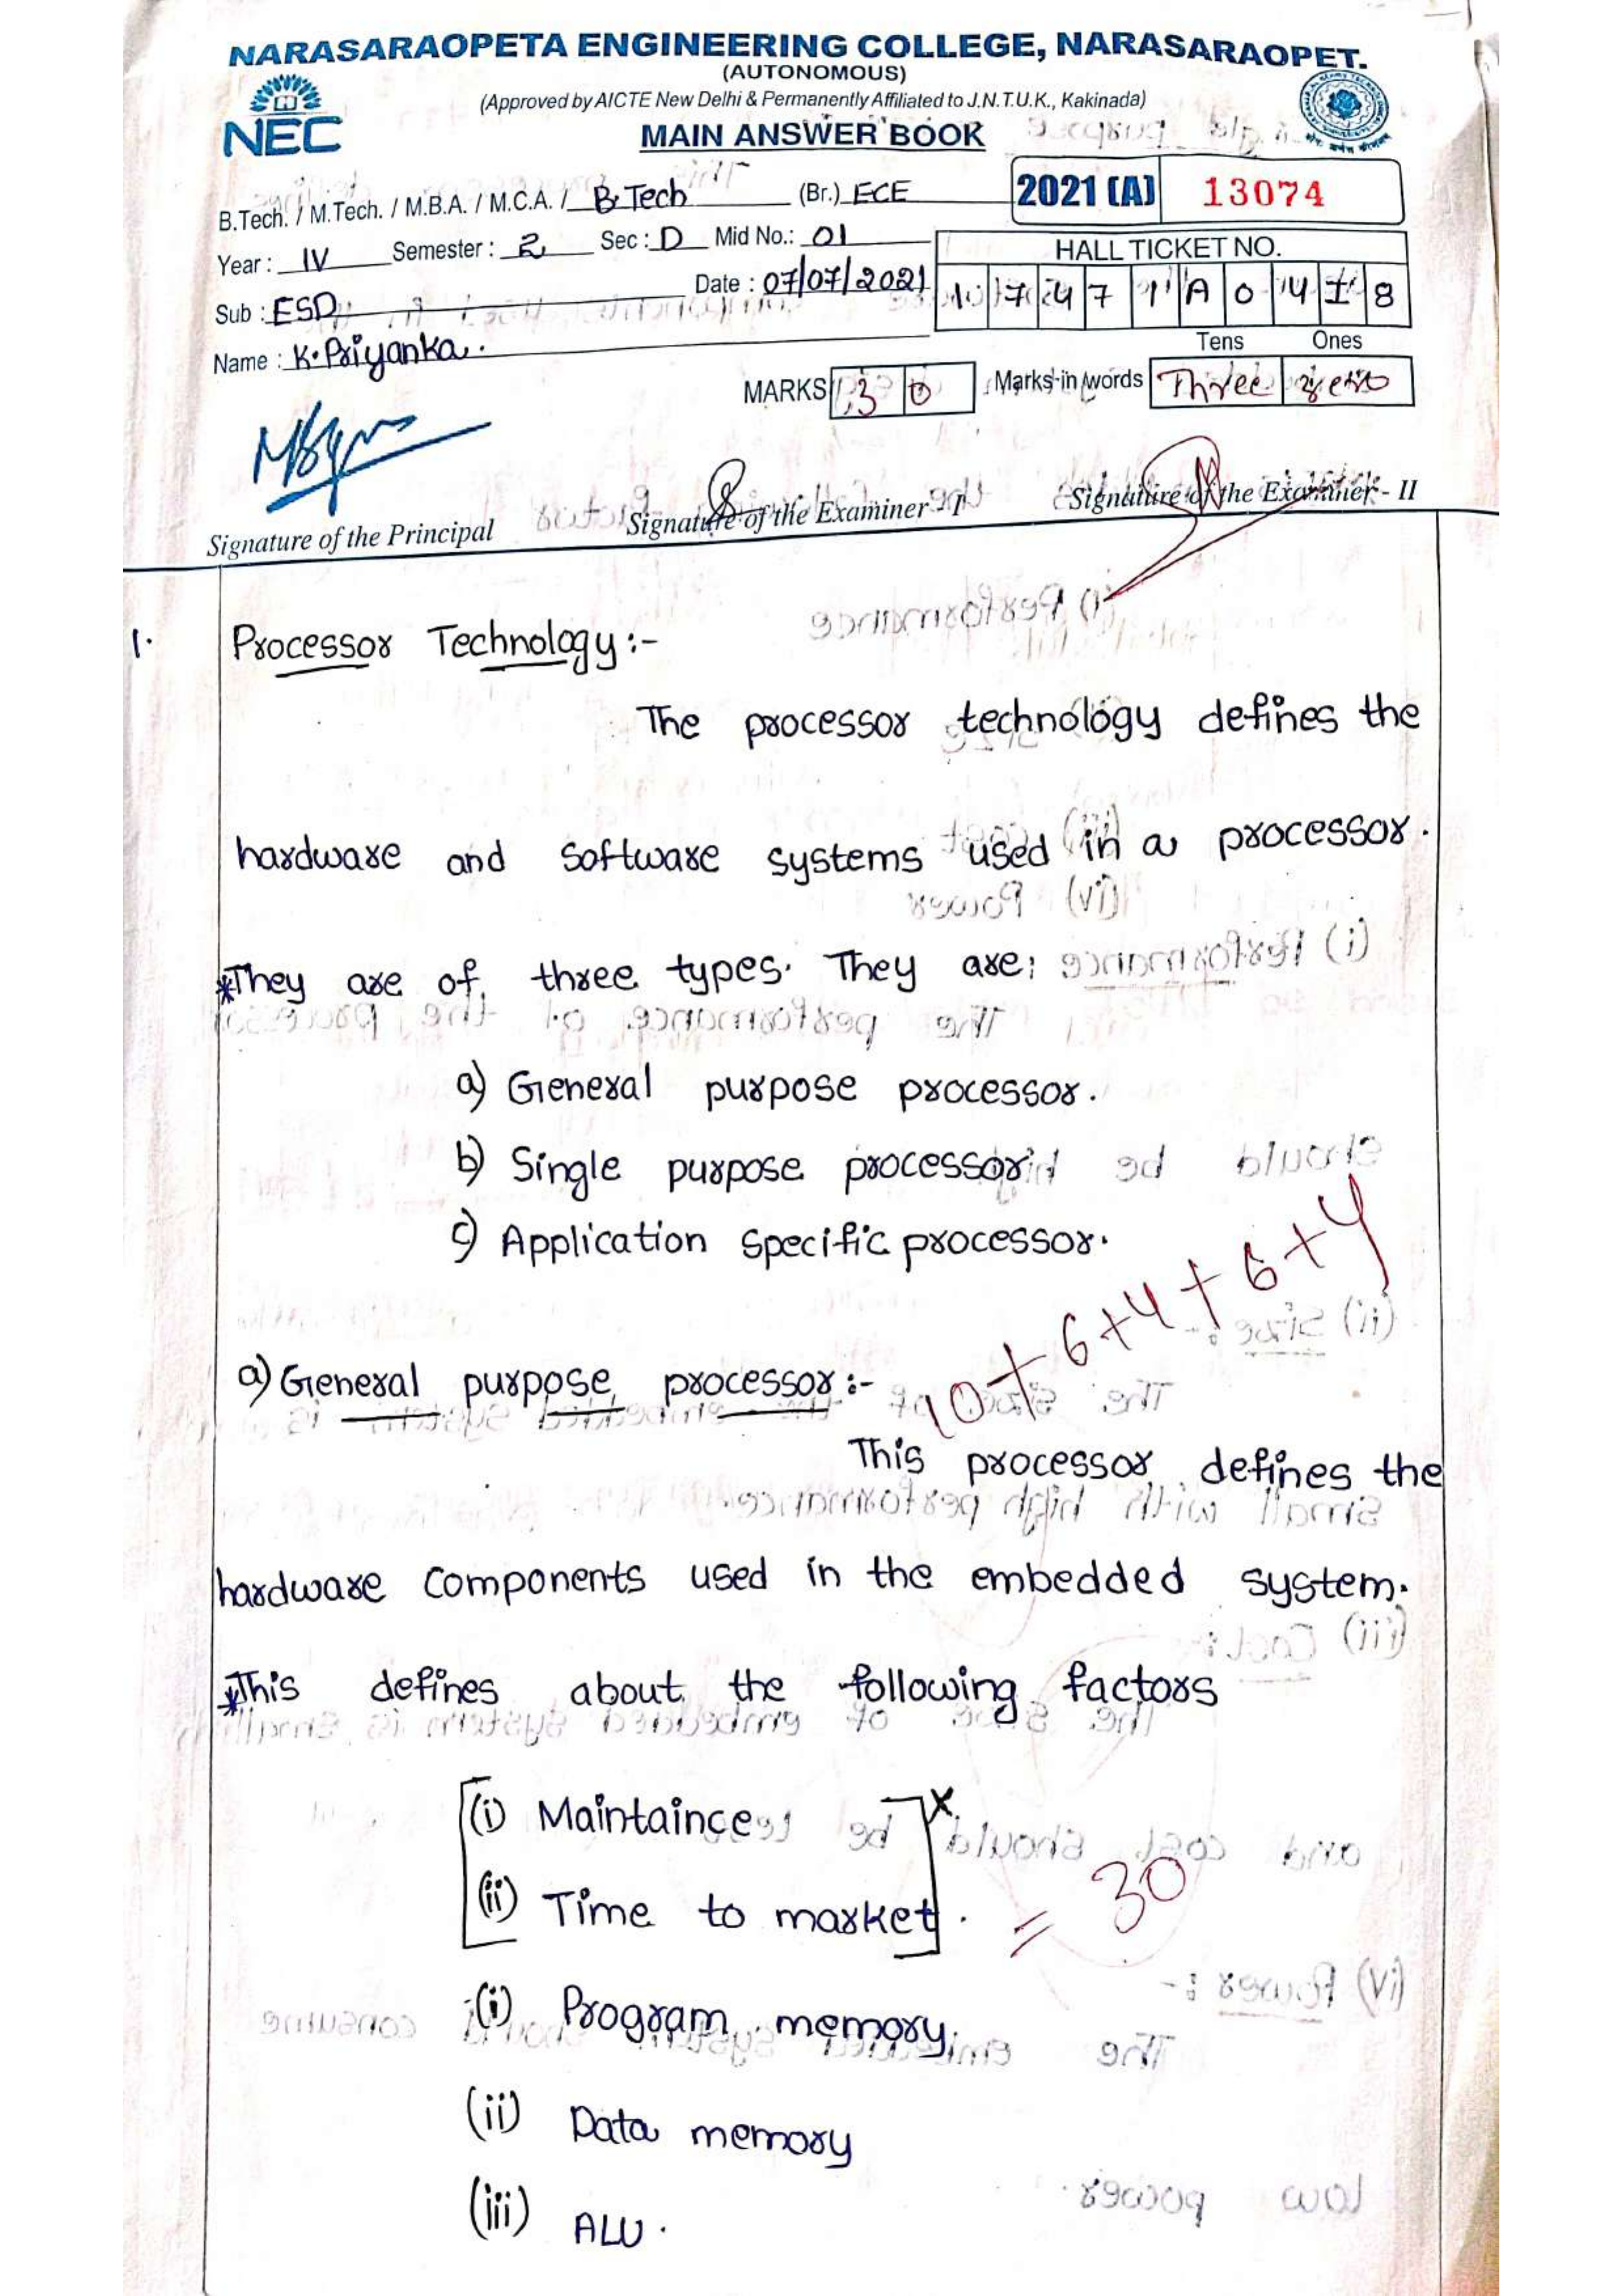 NARASARAOPETA ENGINEERING COLLEGE, NARASARAOPET.
(AUTONOMOUS)
(Approved by AICTE New Delhi & Permanently Affiliated to J.N.T.U.K., Kakinada)
NEC
MAIN ANSWER BOOK
B.Tech. / M.Tech. / M.B.A. / M.C.A. / B.Tech (Br.) ECE
2021 (A) 13074
Year : IV Semester : 2 Sec : D Mid No.: 01
HALL TICKET NO.
Sub : ESD Date : 07/07/2021
1 7 4 7 1 A 0 4 I 8
Name : K. Priyanka.
Tens Ones
MARKS 3 0 Marks in words Three zero
Signature of the Principal Signature of the Examiner - I Signature of the Examiner - II
1. Processor Technology :-
The processor technology defines the
hardware and software systems used in a processor.
*They are of three types. They are;
a) General purpose processor.
b) Single purpose processor
c) Application specific processor.
10+6+4+6+4
a) General purpose processor :-
This processor defines the
hardware components used in the embedded system.
*This defines about the following factors
(i) Maintaince x
(ii) Time to market.
= 30
(i) Program memory
(ii) Data memory
(iii) ALU.